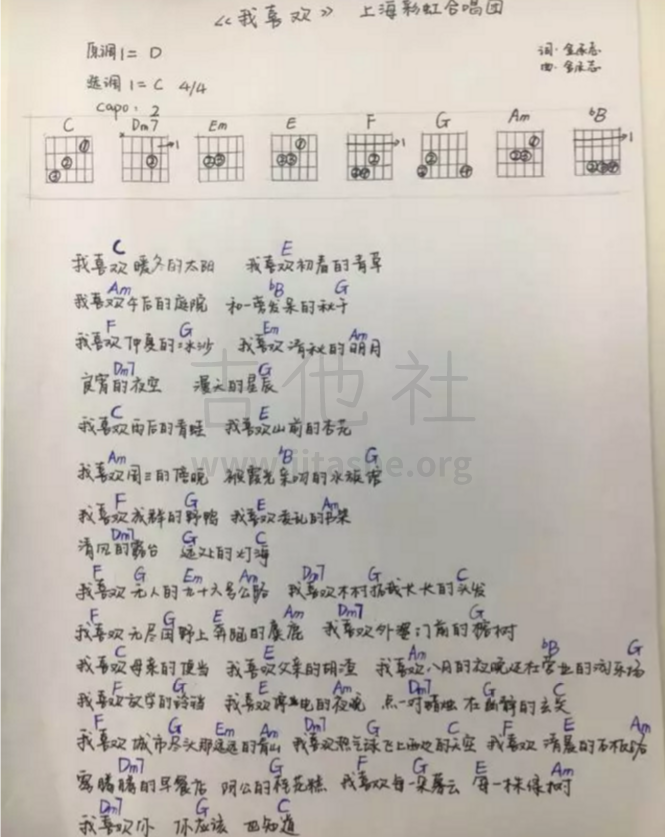 《我喜欢》 上海彩虹合唱团
原调1= D
选调1= C 4/4
capo: 2
词: 金承志
曲: 金承志
C Dm7 Em E F G Am bB
C E
我喜欢暖冬的太阳 我喜欢初春的青草
Am bB G
我喜欢午后的庭院 和一旁发呆的秋千
F G Em Am
我喜欢仲夏的冰沙 我喜欢清秋的明月
Dm7 G
良宵的夜空 漫天的星辰
吉他社
C E
我喜欢雨后的青蛙 我喜欢山前的杏花
Am bB G
www.jitashe.org
我喜欢周三的傍晚 被霞光亲吻的水族馆
F G E Am
我喜欢成群的野鸭 我喜欢凌乱的书架
Dm7 G C
清风的露台 远处的灯海
F G Em Am Dm7 G C
我喜欢无人的六十六号公路 我喜欢木村拓哉长长的头发
F G E Am Dm7 G
我喜欢无尽田野上奔跑的麋鹿 我喜欢外婆门前的榕树
C E Am bB G
我喜欢母亲的便当 我喜欢父亲的胡渣 我喜欢八月的夜晚还在营业的游乐场
F G E Am Dm7 G C
我喜欢放学的铃铛 我喜欢停电的夜晚 点一对蜡烛 在幽静的玄关
F G Em Am Dm7 G C F E Am
我喜欢城市尽头那遥远的青山 我喜欢热气球飞上西边的天空 我喜欢清晨的石板路
Dm7 G C F G E Am
雾朦朦的早餐店 阿公的桂花糕 我喜欢每一朵暮云 每一株绿树
Dm7 G C
我喜欢你 你应该 也知道